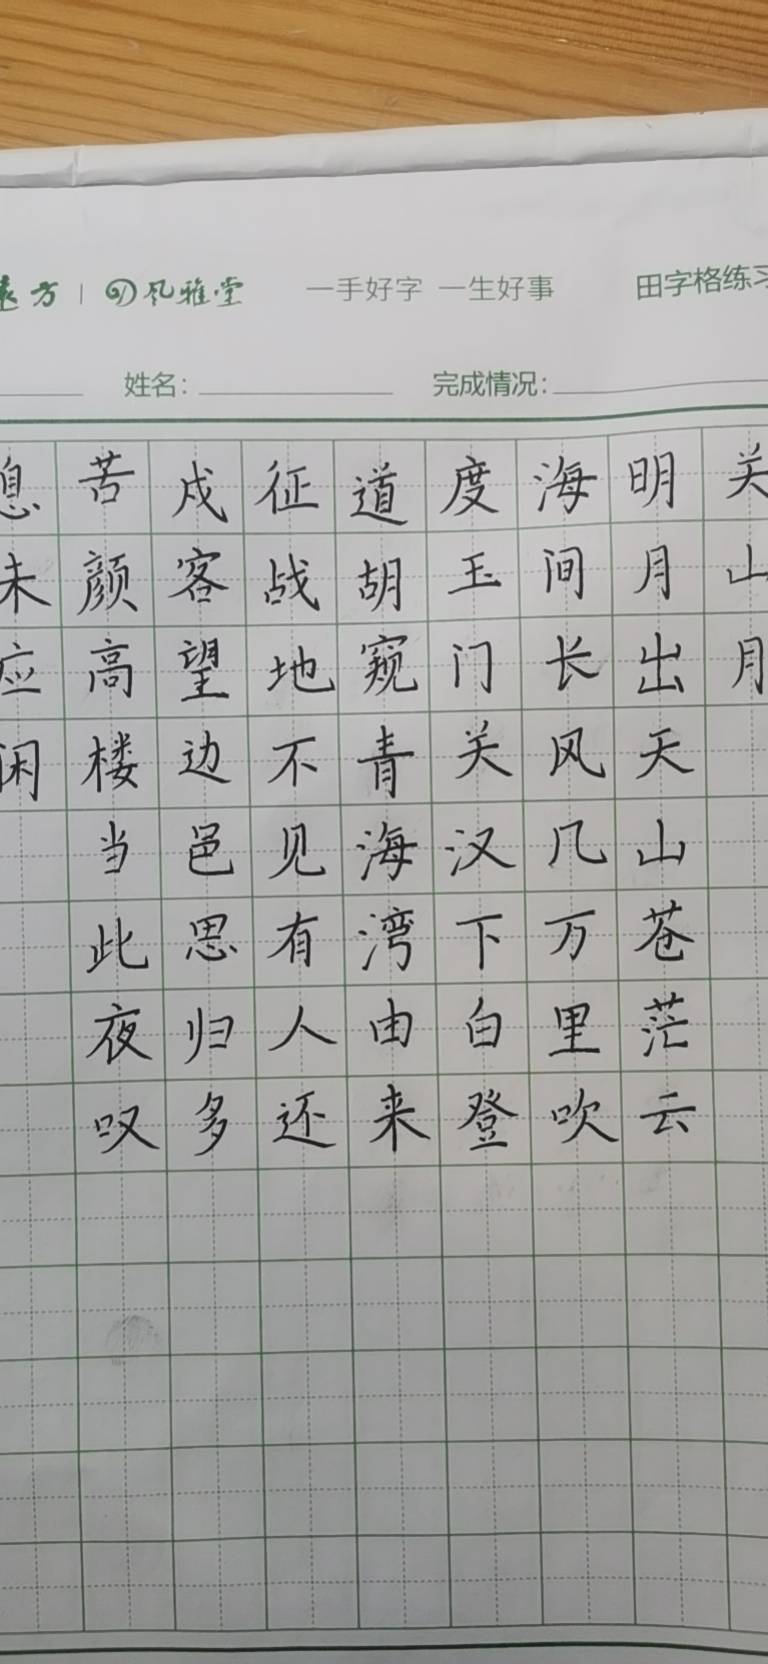 方 | 风雅堂 一手好字 一生好事 田字格练习
姓名： 完成情况：
关山月
明月出天山苍茫云
海间长风几万里吹
度玉门关汉下白登
道胡窥青海湾由来
征战地不见有人还
戍客望边邑思归多
苦颜高楼当此夜叹
息未应闲